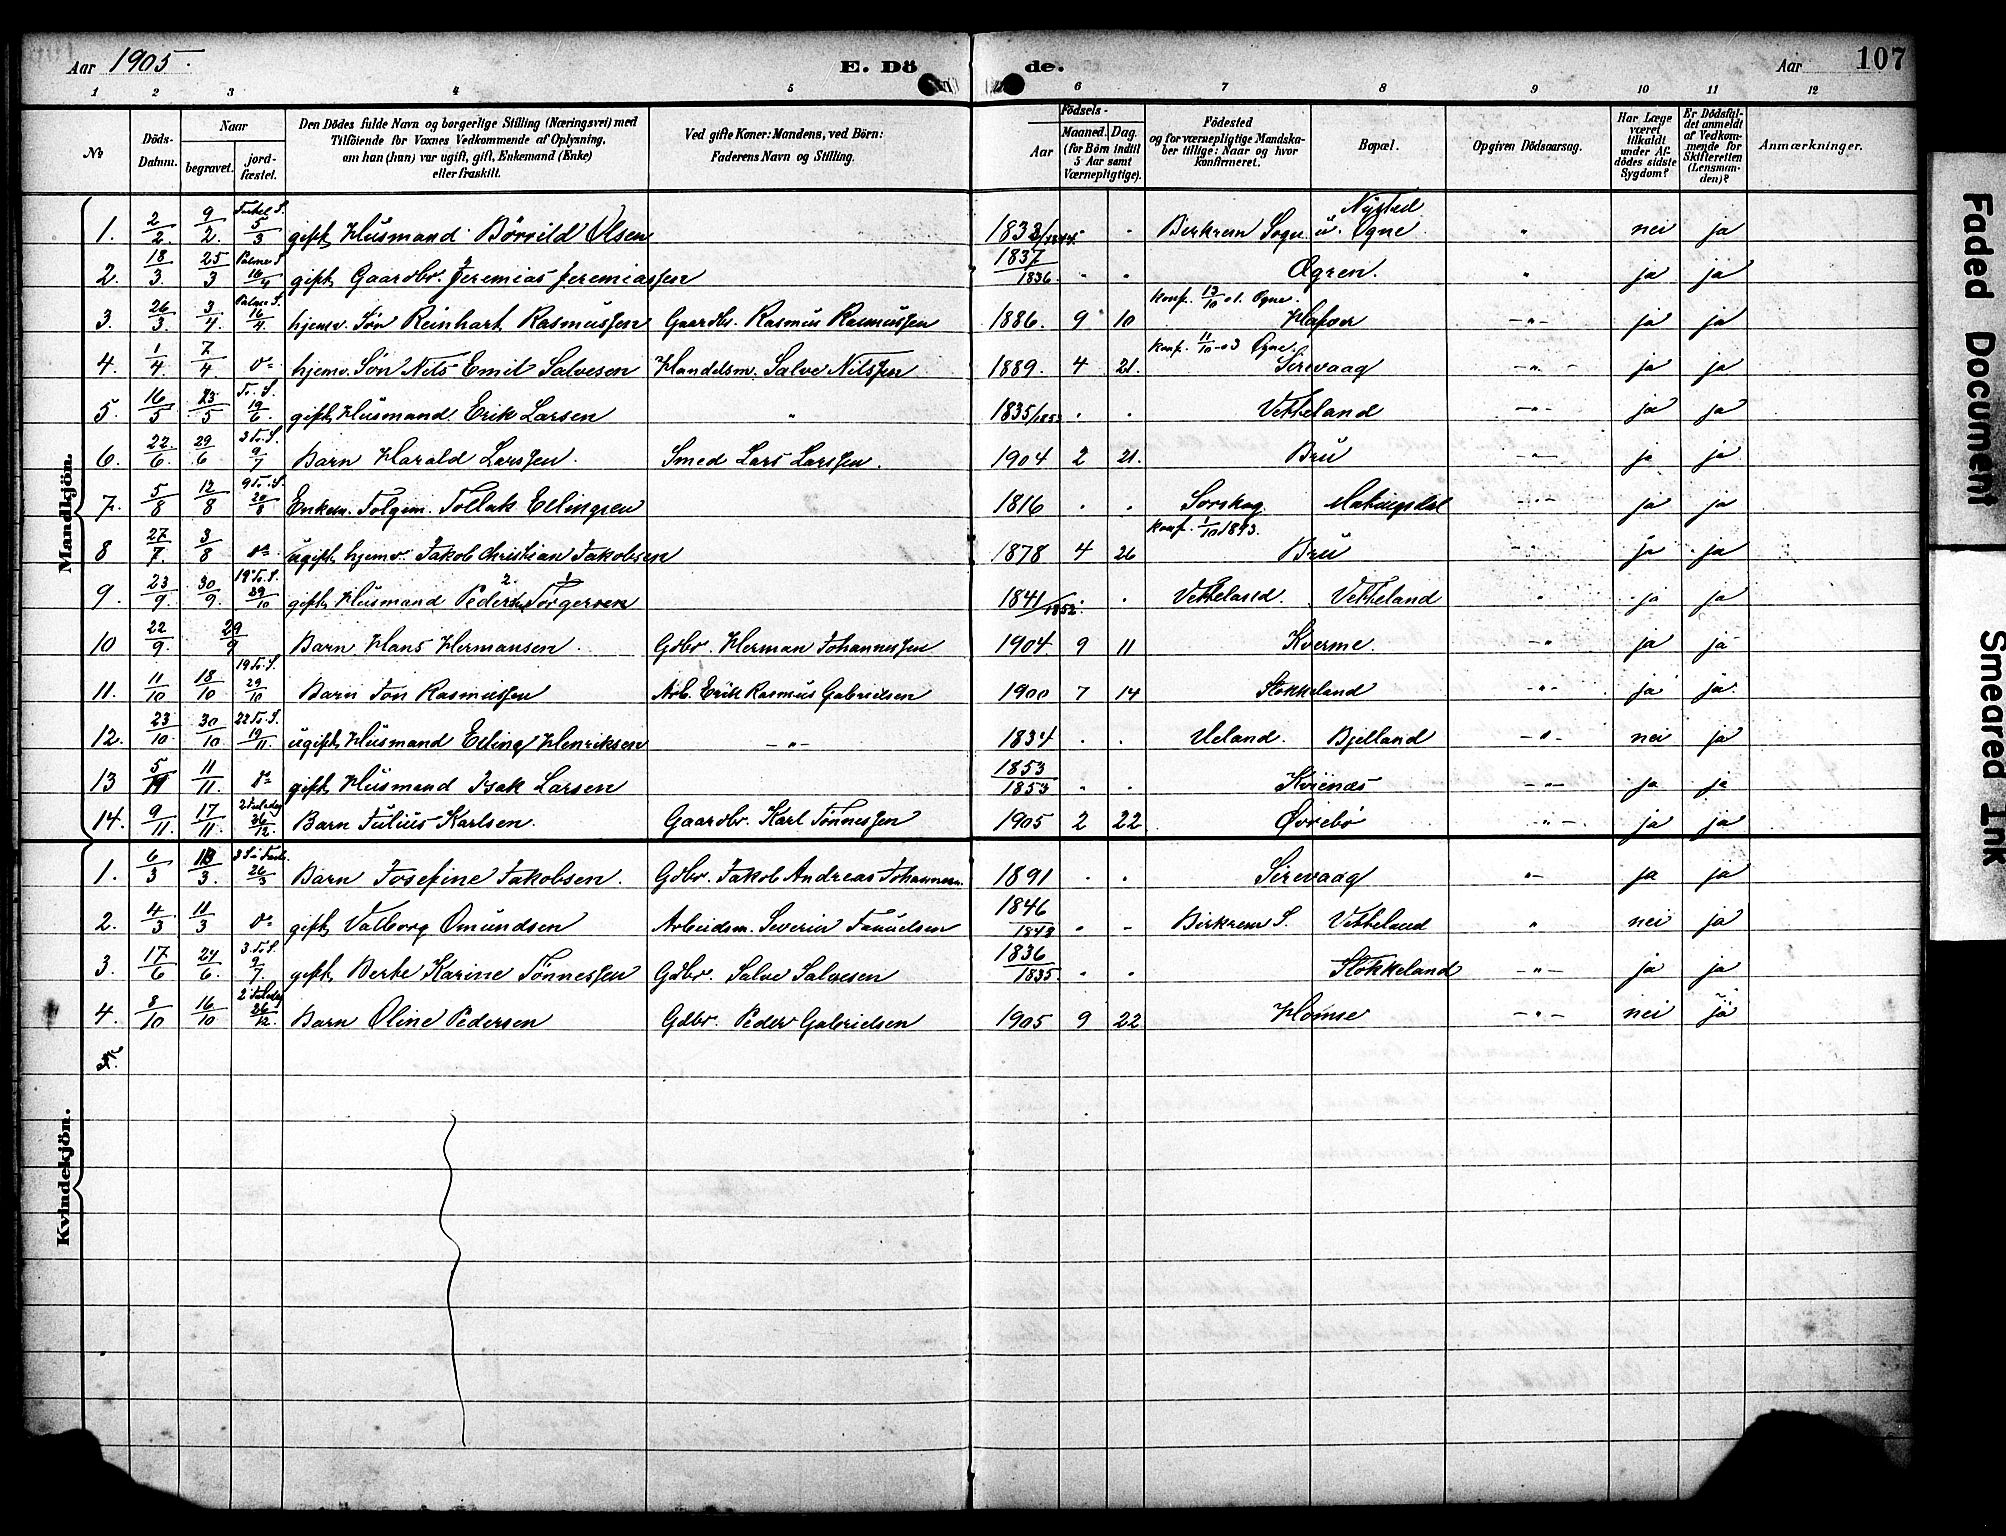 Aar 1905.
E. Dö
de.
Aar
107
1 2 3 4 5 6 7 8 9 10 11 12
No
Döds-Datum.
Naar
begravet.
jord-fæstet.
Den Dödes fulde Navn og borgerlige Stilling (Næringsvei) med
Tilföiende for Voxnes Vedkommende af Oplysning,
om han (hun) var ugift, gift, Enkemand (Enke)
eller fraskilt.
Ved gifte Koner: Mandens, ved Börn:
Faderens Navn og Stilling.
Födsels-
Aar
Maaned. Dag.
(for Börn indtil
5 Aar samt
Værnepligtige).
Födested
og for værnepligtige Mandska-
ber tillige: Naar og hvor
konfirmeret.
Bopæl.
Opgiven Dödsaarsag.
Har Læge
været
tilkaldt
under Af-
dödes sidste
Sygdom?
Er Dödsfal-
det anmeldt
af Vedkom-
mende for
Skifteretten
(Lensman-
den)?
Anmærkninger.
Mandkjön.
1. 2/2. 9/2. 5/3 gift Husmand Börrild Olsen 1833/1844 " Birkrem Sogn Nystad u. Ogne " nei ja
2. 18/3. 25/3 Palmes. 16/4 gift Gaardbr. Jeremias Jeremiassen 1837/1836. " " Ogren. " ja ja
3. 26/3. 3/4 Palmes. 16/4 hjemv. Søn Reinhart Rasmussen Gaardbr. Rasmus Rasmussen 1886. 9 10 Konf. 13/10 01. Ogne. -"- ja ja
4. 1/4. 7/4 do hjemv. Søn Nils Emil Salvesen Handelsm. Salve Nilssen 1889. 4 21. Konf. 11/10 -03 Ogne. Sirevaag -"- ja ja
5. 16/5 23/5 Tr. S. 19/6. gift Husmand Erik Larsen " 1835/1853 " " Vetteland -"- ja ja
6. 22/6. 29/6 3 Tr. S. 9/7 Barn Harald Larssen. Smed Lars Larssen. 1904 2 21. Bru -"- ja ja
7. 5/8 12/8 9 Tr. S. 20/8 Enkem. Tollak Ellingsen 1816 " " Sorskog Matingsdal -"- ja ja
8 27/7. 3/8 do ugift hjemv. Jakob Christian Jakobsen 1878 4 26 Konf. 1/10 1893. Bru " ja ja
9. 23/9. 30/9. 19 Tr. S. 29/10 gift Husmand Peder Torgersen 1841/1852 " " Vetteland. Vetteland " ja ja
10 22/9. 29/9 Barn Hans Hermansen. Gdbr. Herman Johannessen 1904 9 11 Kverme. -"- ja ja
11. 11/10 18/10 19 Tr. S. 29/10 Barn Jon Rasmussen Arb. Erik Rasmus Gabrielsen 1900 7 14 Stokkeland -"- ja ja.
12. 23/10. 30/10 22 Tr. S. 19/11. ugift Husmand Elling Henriksen -"- 1834 " " Ueland. Bjelland -"- nei ja
13 5/11 11/11. do gift Husmand Isak Larsen 1853/1853 " " Kvienæs -"- ja ja
14. 9/11. 17/11. 2 Juledag 26/12. Barn Julius Karlsen. Gaardbr. Karl Tønnessen 1905 2 22 Øvrebø -"- ja ja
Kvindekjön.
1. 6/3 13/3. 26/3 Barn Josefine Jakobsen. Gdbr. Jakob Andreas Johannesen. 1891 " " Sirevaag "- ja ja
2. 4/3 11/3 do gift Valborg Omundsen Arbeidsm. Severin Samuelsen 1846/1843 " " Birkrem S. Vetteland " nei ja
3. 17/6 24/6. 3. Tr. S. 9/7. gift Berte Karine Tønnessen Gdbr. Salve Salvesen 1836/1835. " " Stokkeland -"- ja ja
4. 8/10 16/10 2 Juledag 26/12. Barn Oline Pedersen Gdbr. Peder Gabrielsen 1905 9 22 Homse -"- nei ja
5.
Faded Document
Smeared Ink